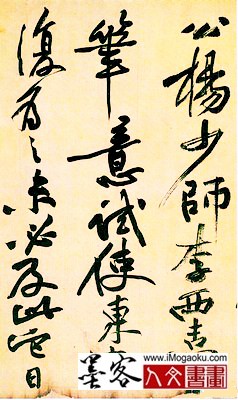 公楊少師李西臺
筆意試使東
復為之未必及此它日
www.iMogaoku.com
墨客 人文書畫